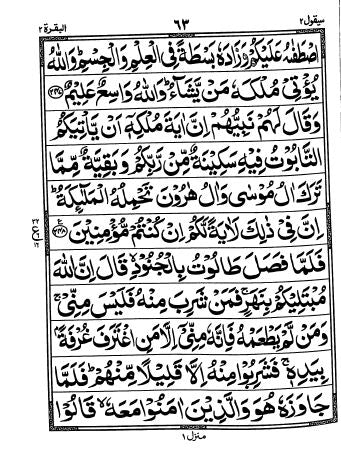 البقرة ٢ ٦٣ سيقول ٢
اصْطَفٰىهُ عَلَيْكُمْ وَزَادَهٗ بَسْطَةً فِى الْعِلْمِ وَالْجِسْمِ ؕ وَاللّٰهُ
يُؤْتِىْ مُلْكَهٗ مَنْ يَّشَآءُ ؕ وَاللّٰهُ وَاسِعٌ عَلِيْمٌ ﴿۲۴۷﴾
وَقَالَ لَهُمْ نَبِيُّهُمْ اِنَّ اٰيَةَ مُلْكِهٖۤ اَنْ يَّاْتِيَكُمُ
التَّابُوْتُ فِيْهِ سَكِيْنَةٌ مِّنْ رَّبِّكُمْ وَبَقِيَّةٌ مِّمَّا
تَرَكَ اٰلُ مُوْسٰى وَاٰلُ هٰرُوْنَ تَحْمِلُهُ الْمَلٰٓئِكَةُ ؕ
اِنَّ فِىْ ذٰلِكَ لَاٰيَةً لَّكُمْ اِنْ كُنْتُمْ مُّؤْمِنِيْنَ ﴿۲۴۸﴾
فَلَمَّا فَصَلَ طَالُوْتُ بِالْجُنُوْدِ ۙ قَالَ اِنَّ اللّٰهَ
مُبْتَلِيْكُمْ بِنَهَرٍ ۚ فَمَنْ شَرِبَ مِنْهُ فَلَيْسَ مِنِّىْ ۚ
وَمَنْ لَّمْ يَطْعَمْهُ فَاِنَّهٗ مِنِّىْۤ اِلَّا مَنِ اغْتَرَفَ غُرْفَةًۢ
بِيَدِهٖ ۚ فَشَرِبُوْا مِنْهُ اِلَّا قَلِيْلًا مِّنْهُمْ ؕ فَلَمَّا
جَاوَزَهٗ هُوَ وَالَّذِيْنَ اٰمَنُوْا مَعَهٗ ۙ قَالُوْا
منزل ١